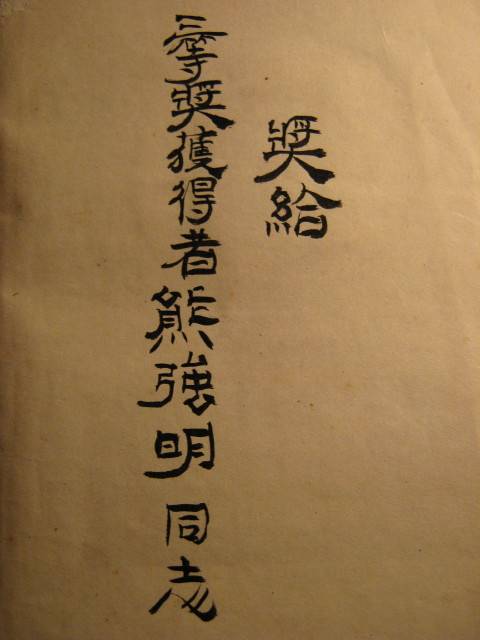 獎給
三等獎獲得者熊強明同志